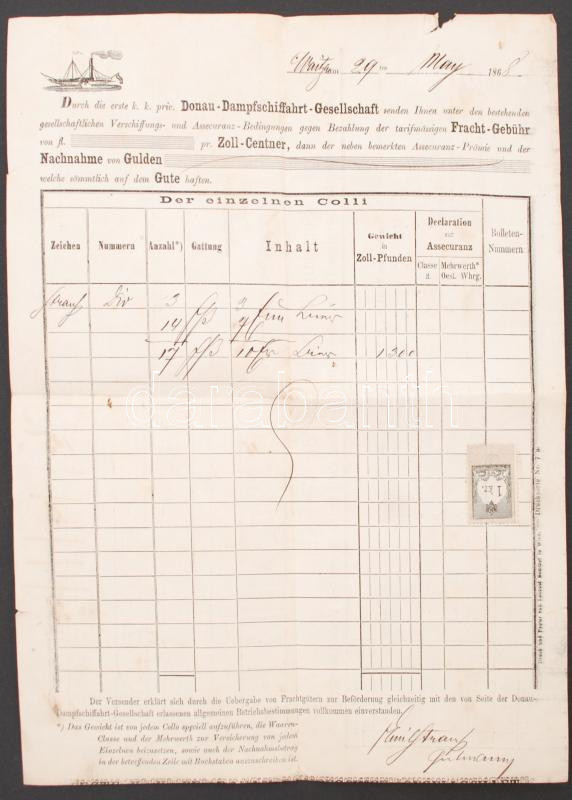 Waitzen am 29ten May 1868.
Durch die erste k. k. priv. Donau-Dampfschiffahrt-Gesellschaft senden Ihnen unter den bestehenden
gesellschaftlichen Verschiffungs- und Assecuranz-Bedingungen gegen Bezahlung der tarifmässigen Fracht-Gebühr
von fl. pr. Zoll-Centner, dann der neben bemerkten Assecuranz-Prämie und der
Nachnahme von Gulden
welche sämmtlich auf dem Gute haften.
Der einzelnen Colli
Zeichen Nummern Anzahl*) Gattung Inhalt Gewicht in Zoll-Pfunden Declaration zur Assecuranz Bolleten-Nummern
Classe à Mehrwerth* Oest. Whrg.
Strauß Div 3
14
17 1300
darabanth
1 kr.
Druck und Papier von Leopold Sommer in Wien. — Drucksorte Nr. 7 a.
Der Versender erklärt sich durch die Uebergabe von Frachtgütern zur Beförderung gleichzeitig mit den von Seite der Donau-
Dampfschiffahrt-Gesellschaft erlassenen allgemeinen Betriebsbestimmungen vollkommen einverstanden.
*) Das Gewicht ist von jedem Collo speciell aufzuführen, die Waaren-
Classe und der Mehrwerth zur Versicherung von jedem
Einzelnen beizusetzen, sowie auch der Nachnahmsbetrag
in der betreffenden Zeile mit Buchstaben auszuschreiben ist.
Gutmann